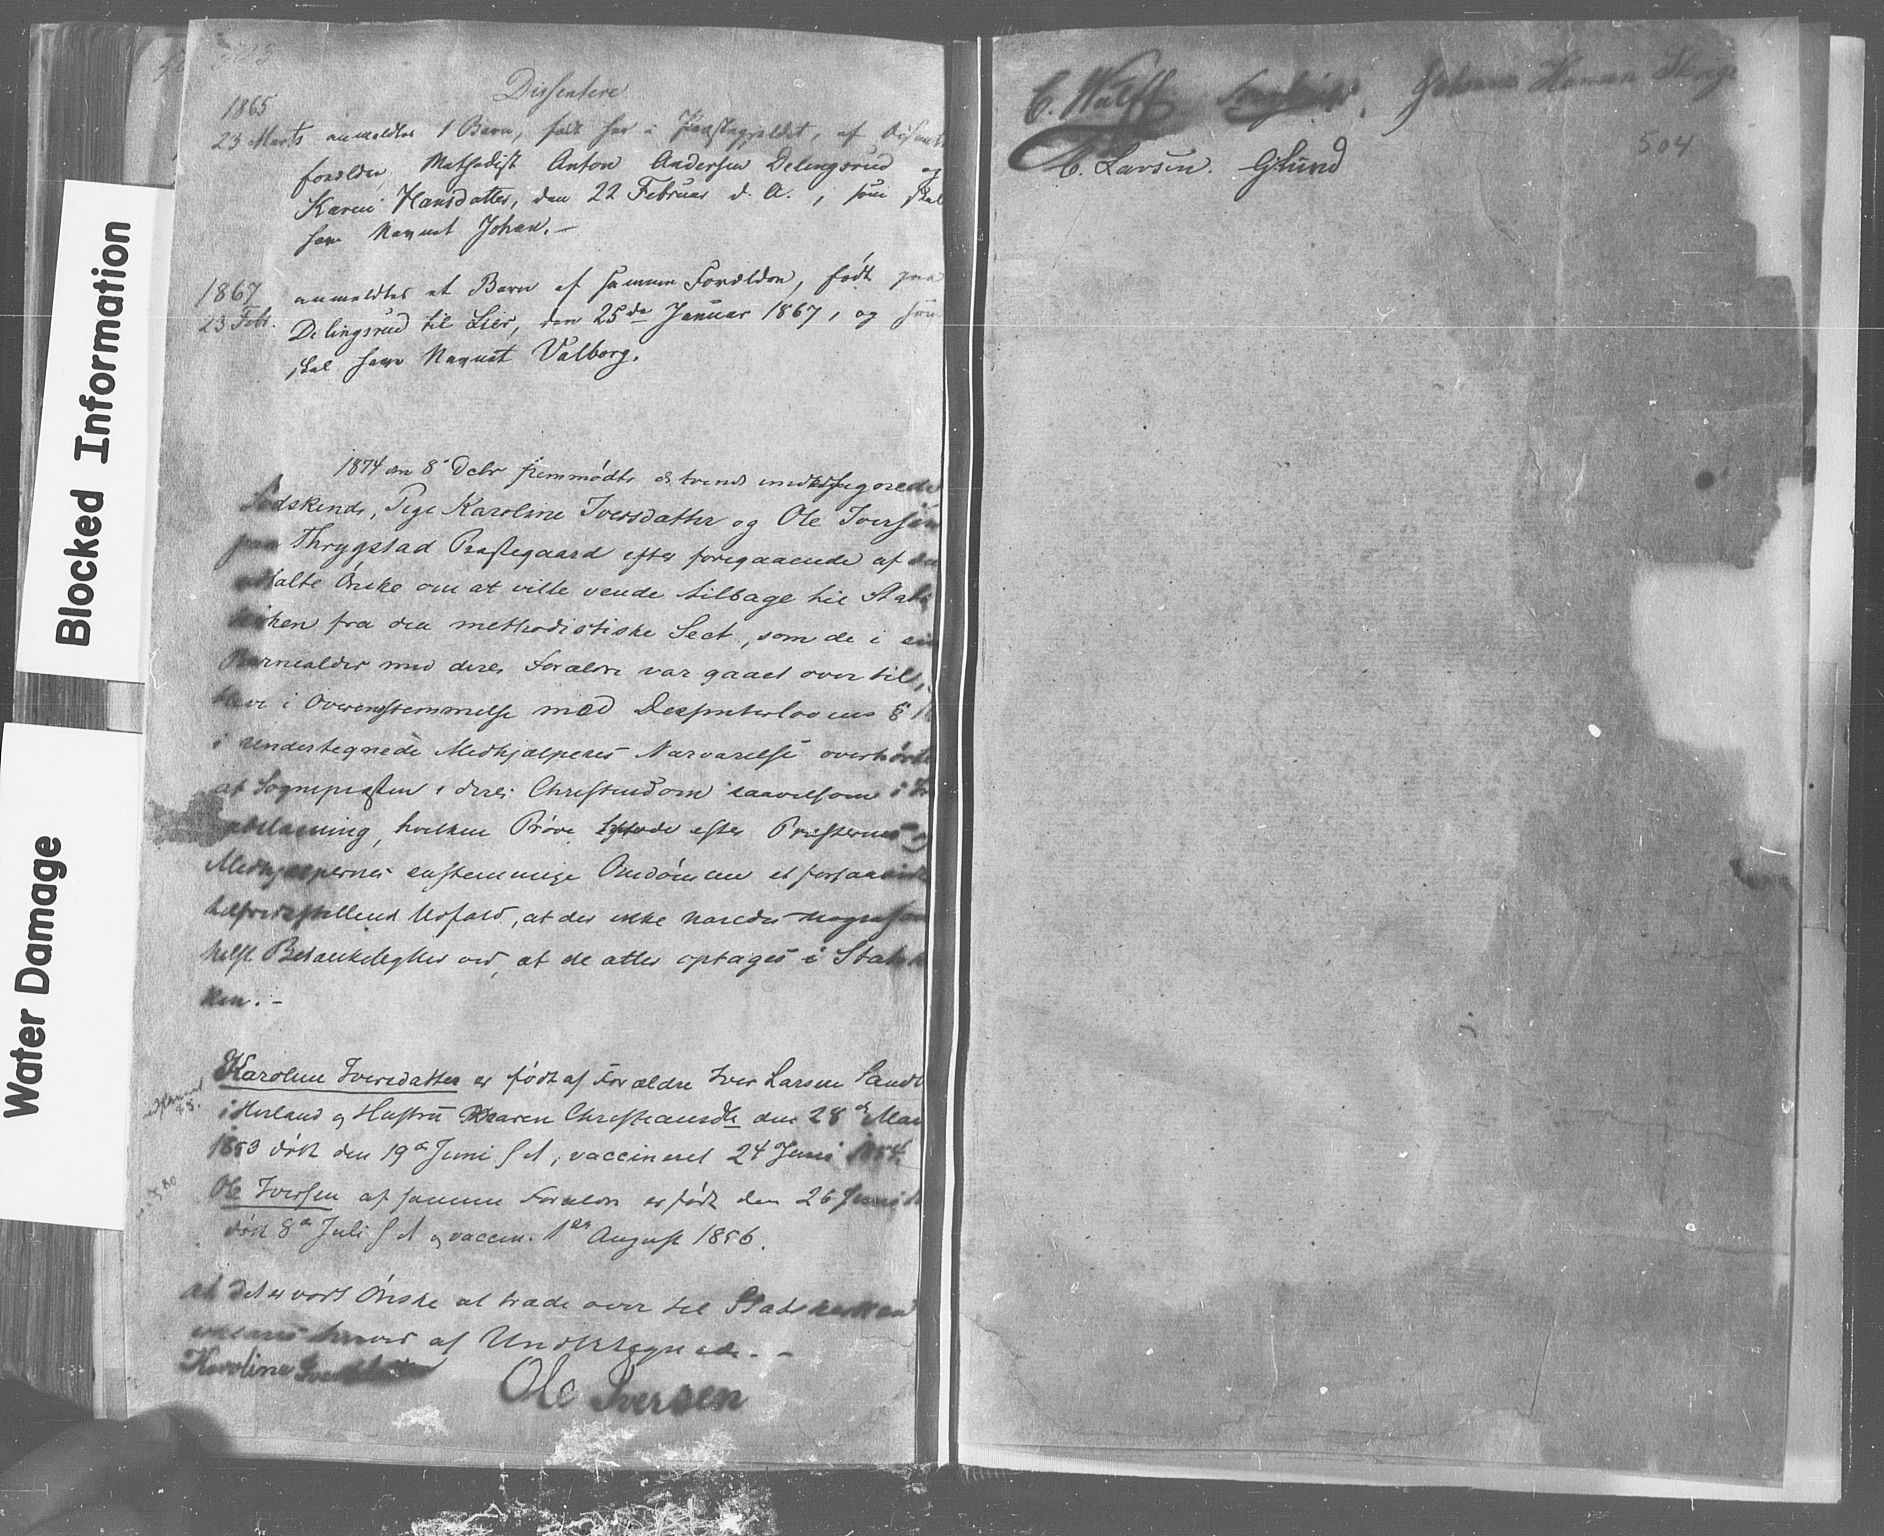 503
Dissentere
1865
23 Marts anmeldtes 1 Barn, født her i Præstegjeldet, af Dissenter
forældre, Methodist Anton Andersen Delingsrud og
Karen Hansdatter, den 22 Februar d. A., som skal
have Navnet Johan.—
1867
23 Febr. anmeldtes et Barn af samme Forældre, født paa
Delingsrud til Lier, den 25de Januar 1867, og som
skal have Navnet Valborg.
1874 den 8 Debr fremmødte de tvende
Sødskende, Pige Karoline Iversdatter og Ole Iversen
paa Thrygstad Præstegaard efter foregaaende af dem
udtalte Ønske om at ville vende tilbage til Stats
kirken fra den methodistiske Sect, som de i sin
Barnealder med deres Forældre var gaaet over til,
bleve i Overensstemmelse med Dissenterlovens §
i undertegnede Medhjælperes Nærværelse overhørte
af Sognepræsten i deres Christendom saavelsom i
hvilken Prøve havde efter Præstens og
Medhjælpernes enstemmige Omdømme et forsaavidt
tilfredsstillende Udfald, at der ikke haredes nogensom
helst Betænkelighed ved, at de atter optages i Statskir
ken.—
Karoline Iversdatter er født af Forældre Iver Larsen
i Herland og Hustru Karen Christiansdtr den 28de Mai
1853 døbt den 19de Juni s A, vaccineret 24 Juni 1854.
Ole Iversen af samme Forældre er født den 26 Juni
døbt 8de Juli s A og vaccin. 1ste August 1856.
at det er vort Ønske at træde over til Statskirken
erklæres herved af Undertegnede.—
Karoline Iversdatter
Ole Iversen
C. Wulff Johannes Hansen
504
C. Larsen. G Lund
Blocked Information
Water Damage